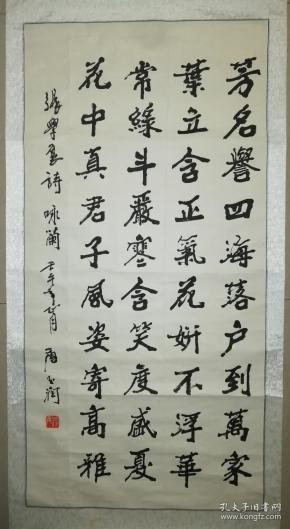 芳名譽四海落户到萬家
葉立含正氣花妍不浮華
常綠斗嚴寒含笑度盛夏
花中真君子風姿寄高雅
張學良詩咏蘭 壬午年
孔夫子旧书网